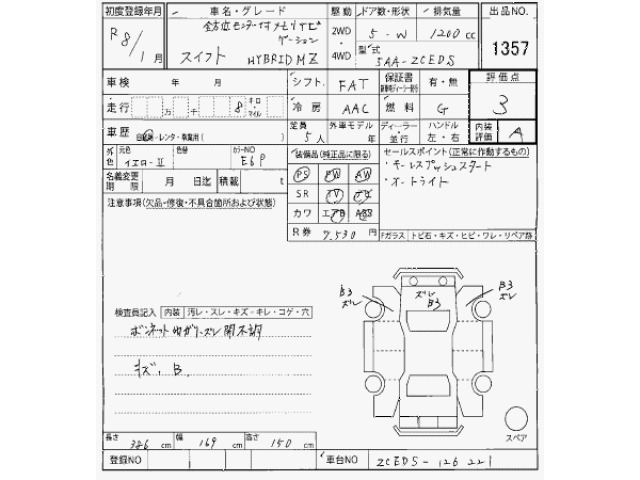 初度登録年月 車名・グレード 駆動 ドア数・形状 排気量 出品NO.
R8/1月 全方位モニター付メモリナビゲーション 2WD・4WD 5-W 1200cc 1357
スイフト HYBRID MZ 型式 5AA-ZCEDS
車検 年 月 シフト FAT 保証書 有・無 評価点
走行 万 千 8 キロ・マイル 冷房 AAC 燃料 G 3
車歴 自家用・レンタ・事業用( ) 定員 5人 外車モデル 年 ディーラー・並行 ハンドル 左・右 内装評価 A
外色 元色 イエロー-II 色替 カラーNO E6P 装備品(純正品に限る) セールスポイント(正常に作動するもの)
名義変更期限 月 日迄 積載 t PS PW AW ・キーレスプッシュスタート
注意事項(欠品・修復・不具合箇所および状態) SR TV ナビ ・オートライト
カワ エアB ABS
R券 9,530円 Fガラス トビ石・キズ・ヒビ・ワレ・リペア跡
B3 ズレ ズレ B3 B3 ズレ
検査員記入 内装 汚レ・スレ・キズ・キレ・コゲ・穴
ボンネット曲ガリ・ズレ 開不調
キズ、B
スペア
長さ 386cm 幅 169cm 高さ 150cm
登録NO 車台NO ZCEDS-126221